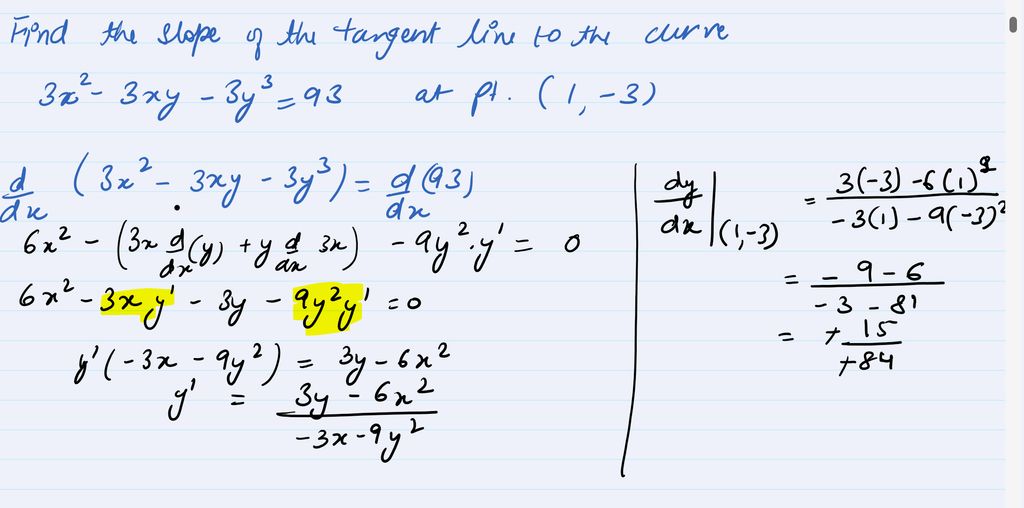 Find the slope of the tangent line to the curve
3x² - 3xy - 3y³ = 93 at pt. (1, -3)
d/dx (3x² - 3xy - 3y³) = d/dx (93)
6x² - (3x d/dx (y) + y d/dx 3x) - 9y² · y' = 0
6x² - 3xy' - 3y - 9y²y' = 0
y'(-3x - 9y²) = 3y - 6x²
y' = (3y - 6x²)/(-3x - 9y²)
dy/dx |(1,-3) = (3(-3) - 6(1)²)/(-3(1) - 9(-3)²)
= (-9 - 6)/(-3 - 81)
= +15/+84